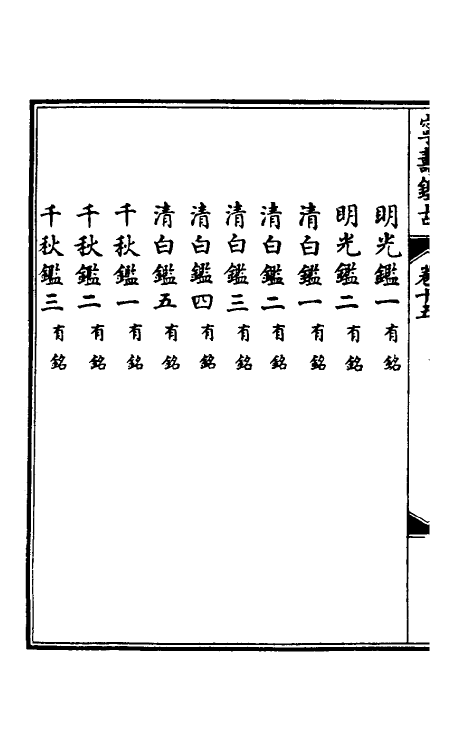 寧壽鑑古 卷十五
明光鑑一有銘
明光鑑二有銘
清白鑑一有銘
清白鑑二有銘
清白鑑三有銘
清白鑑四有銘
清白鑑五有銘
千秋鑑一有銘
千秋鑑二有銘
千秋鑑三有銘